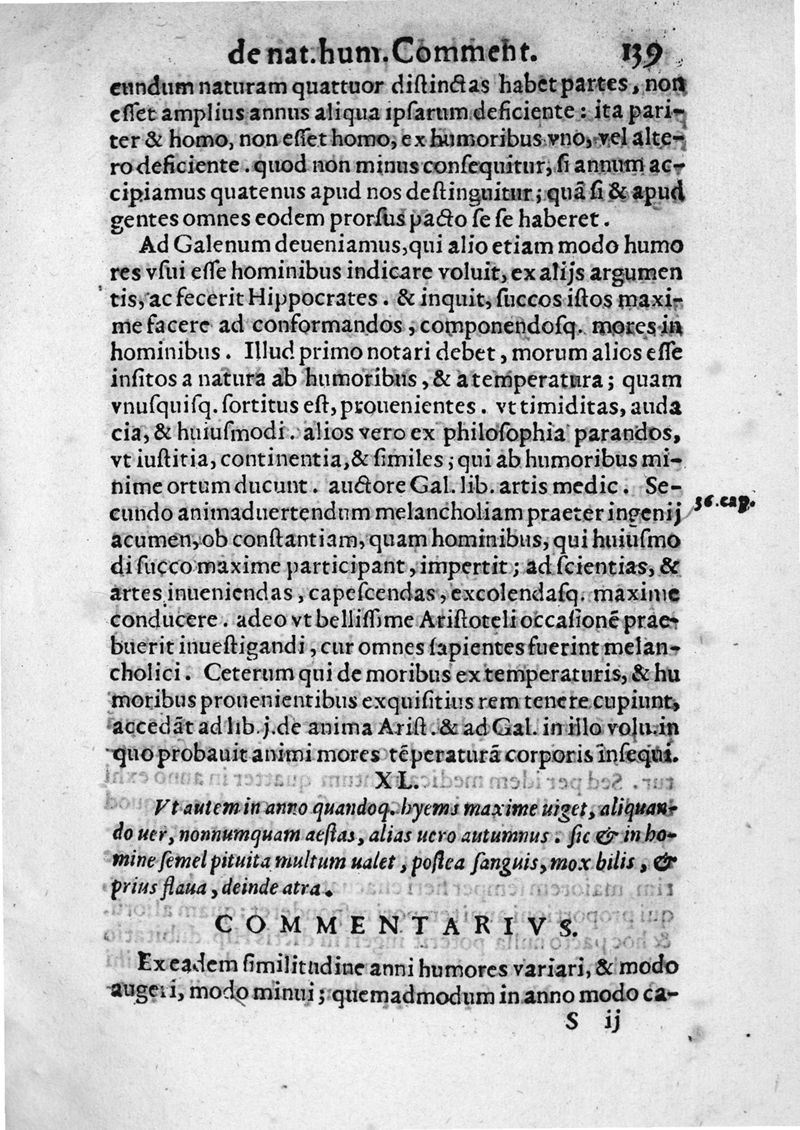 de nat.hum.Comment. 139
cundum naturam quattuor diſtinctas habet partes, non
eſſet amplius annus aliqua ipſarum deficiente : ita pari-
ter & homo, non eſſet homo, ex humoribus vno, vel alte-
ro deficiente . quod non minus conſequitur, ſi annum ac-
cipiamus quatenus apud nos deſtinguitur ; quã ſi & apud
gentes omnes eodem prorſus pacto ſe ſe haberet .
Ad Galenum deueniamus,qui alio etiam modo humo
res vſui eſſe hominibus indicare voluit, ex alijs argumen
tis, ac fecerit Hippocrates . & inquit, ſuccos iſtos maxi-
me facere ad conformandos , componendoſq. mores in
hominibus . Illud primo notari debet , morum alios eſſe
inſitos a natura ab humoribus , & a temperatura ; quam
vnuſquiſq. ſortitus eſt, prouenientes . vt timiditas, auda
cia, & huiuſmodi . alios vero ex philoſophia parandos,
vt iuſtitia, continentia,& ſimiles ; qui ab humoribus mi-
nime ortum ducunt . auctore Gal. lib. artis medic . Se-
cundo animaduertendum melancholiam praeter ingenij 36.cap.
acumen, ob conſtantiam, quam hominibus, qui huiuſmo
di ſucco maxime participant , impertit ; ad ſcientias, &
artes inueniendas , capeſcendas , excolendaſq. maxime
conducere . adeo vt belliſſime Ariſtoteli occaſionẽ prae-
buerit inueſtigandi , cur omnes ſapientes fuerint melan-
cholici . Ceterum qui de moribus ex temperaturis, & hu
moribus prouenientibus exquiſitius rem tenere cupiunt,
accedãt ad lib. j. de anima Ariſt . & ad Gal. in illo volu. in
quo probauit animi mores tẽperaturã corporis inſequi.
XL.
Vt autem in anno quandoq. hyems maxime uiget, aliquan-
do uer, nonnumquam aeſtas, alias uero autumnus . ſic & in ho-
mine ſemel pituita multum ualet , poſtea ſanguis, mox bilis , &
prius flaua , deinde atra .
COMMENTARIVS.
Ex eadem ſimilitudine anni humores variari, & modo
augeri, modo minui ; quemadmodum in anno modo ca-
S ij